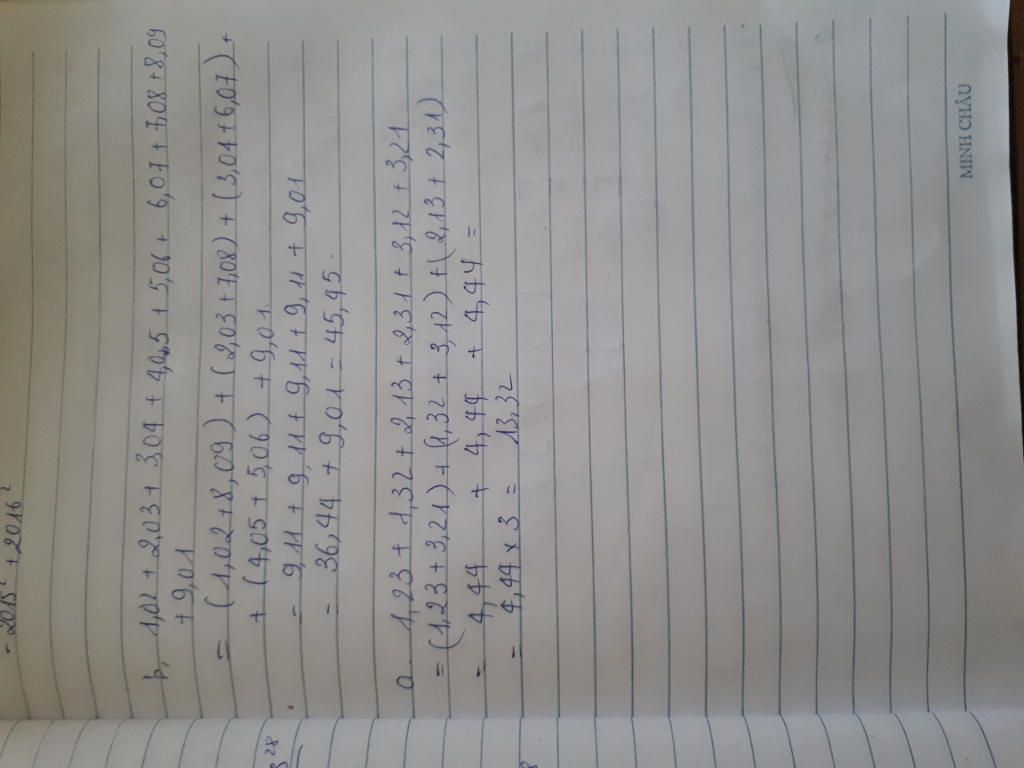 - 2015² + 2016²
b, 1,02 + 2,03 + 3,04 + 4,05 + 5,06 + 6,07 + 7,08 + 8,09
+ 9,01
= (1,02 + 8,09) + (2,03 + 7,08) + (3,04 + 6,07) +
+ (4,05 + 5,06) + 9,01.
= 9,11 + 9,11 + 9,11 + 9,11 + 9,01
= 36,44 + 9,01 = 45,45.
a. 1,23 + 1,32 + 2,13 + 2,31 + 3,12 + 3,21
= (1,23 + 3,21) + (1,32 + 3,12) + (2,13 + 2,31)
= 4,44 + 4,44 + 4,44 =
= 4,44 x 3 = 13,32
MINH CHÂU